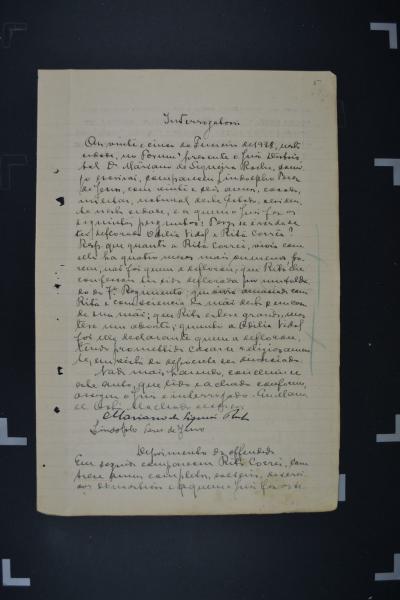 Interrogatorio
Aos vinte e cinco de Fevereiro de 1928, nesta
cidade, no Forum, presente o Juiz Distric-
tal Dr Mariano de Siqueira Rocha, comi-
go escrivão, compareceu Lindolpho Peres
de Jesus, com vinte e seis annos, casado,
militar, natural deste Estado, residen-
te nesta cidade, e a quem o Juiz fez as
seguintes perguntas: Perg. se é verdade
ter deflorado Odilia Vidal e Rita Corrêa?
Resp. que quanto a Rita Corrêa, viveu com
ella ha quatro mezes mais ou menos, po-
rem, não foi quem a deflorou, que Rita lhe
confessou ter sido deflorada por um solda-
do do 7º Regimento; que viveu amasiado com
Rita e com sciencia da mãe desta e
de sua mãi; que Rita esteve gravida, mas
teve um aborto; quanto a Odilia Vidal
foi elle declarante quem a deflorou,
tendo promettido casar religiosamen-
te,
Nada mais havendo, encerrou-se
este auto, que lido e achado conforme,
assigna o Juiz e interrogado. Eu
Machado escrivão
Mariano de Siqueira Rocha
Lindolpho Peres de Jesus
Depoimento da offendida
Em seguida compareceu Rita Corrêa, com
treze annos completos, solteira,
e a quem o Juiz fez